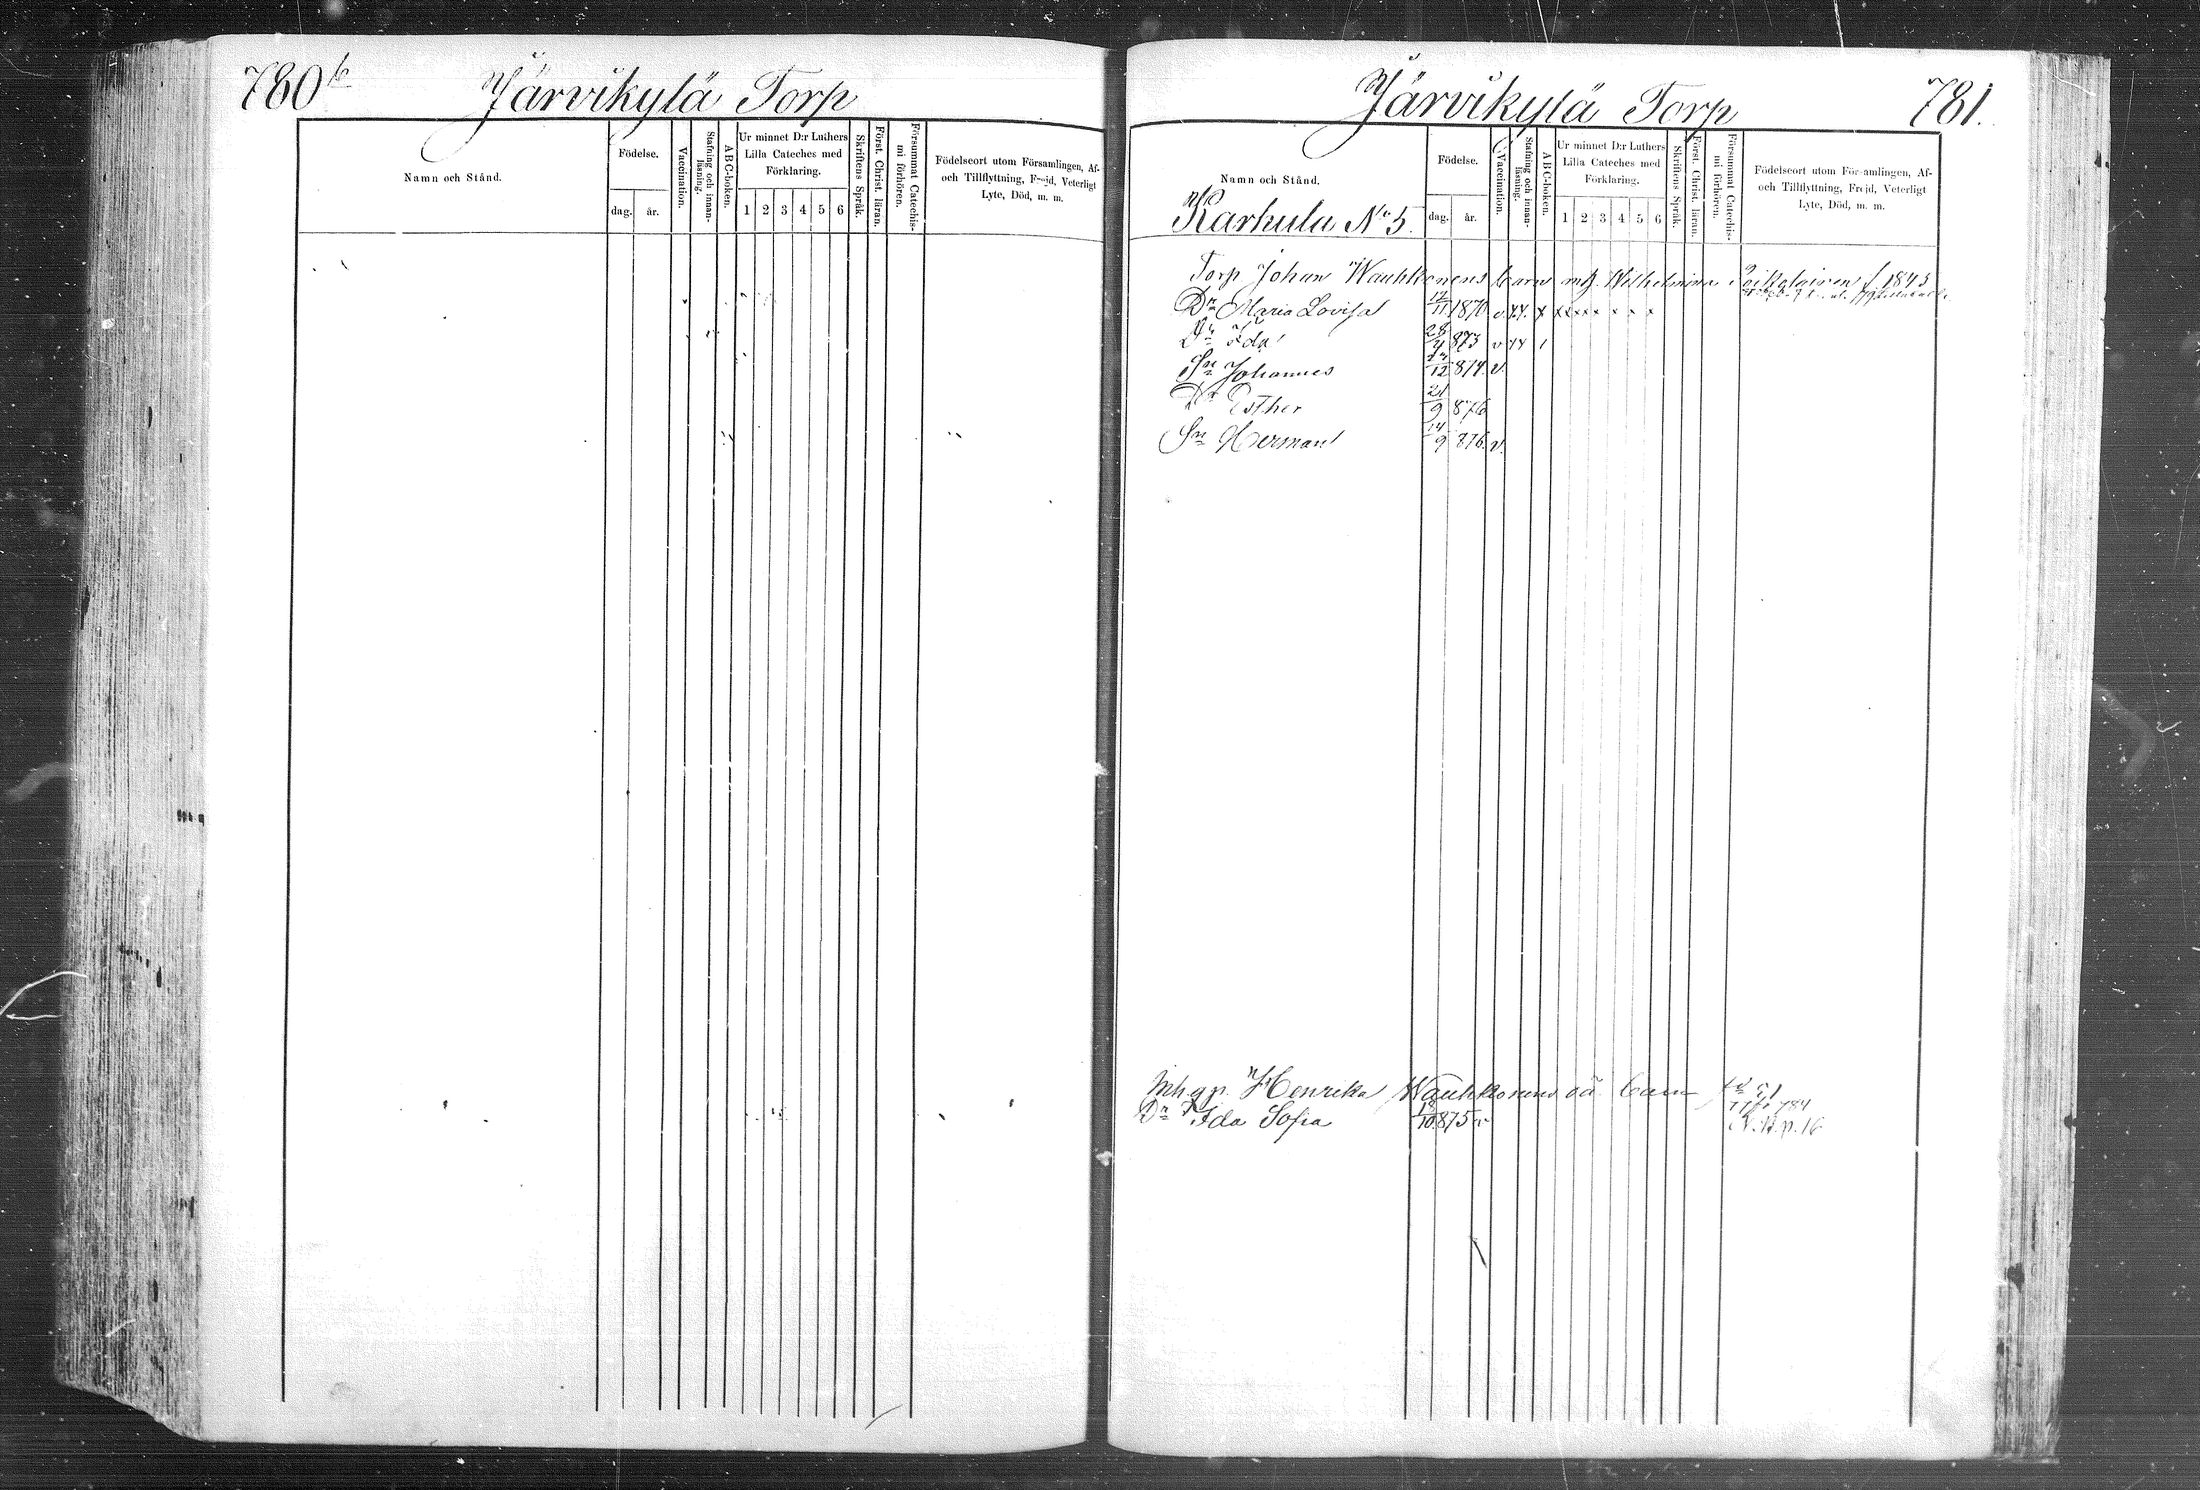 780 b
Järvikylä Torp
Namn och Stånd.
Födelse.
dag.
år.
Vaccination.
Stafning och innan-
läsning.
ABC-boken.
Ur minnet D:r Luthers
Lilla Cateches med
Förklaring.
1 2 3 4 5 6
Skriftens Språk.
Först. Christ. läran.
Försummat Catechis-
mi förhören.
Födelseort utom Församlingen, Af-
och Tillflyttning, Frejd, Veterligt
Lyte, Död, m. m.
Järvikylä Torp
781.
Namn och Stånd.
Karhula No 5.
Födelse.
dag.
år.
Vaccination.
Stafning och innan-
läsning.
ABC-boken.
Ur minnet D:r Luthers
Lilla Cateches med
Förklaring.
1 2 3 4 5 6
Skriftens Språk.
Först. Christ. läran.
Försummat Catechis-
mi förhören.
Födelseort utom Församlingen, Af-
och Tillflyttning, Frejd, Veterligt
Lyte, Död, m. m.
Torp Johan Wauhkonens barn m. Wilhelmina Poikolainen f. 1845
Dr Maria Lovisa 12/11 1870 v. x x x x x x x x x
Dr Ida 28/4 873 v
Sn Johannes /12 874. v.
Dr Esther 21/9 876
Sn Herman 14/9 876. v.
Inh. gp. Henrika Wauhkonens oä barn
784
Dr Ida Sofia 18/10 875 v
N.B. p. 16